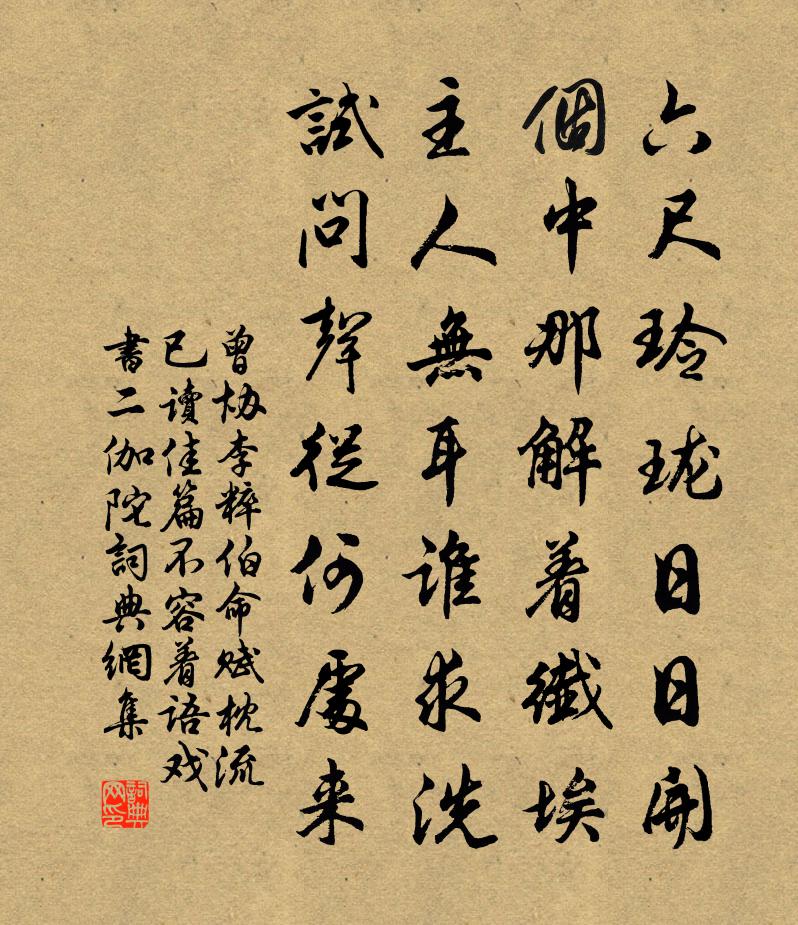 六尺玲珑日日開
個中那解着纖埃
主人無耳誰求洗
試問聲從何處来
曾协李粹伯命赋枕流
已讀佳篇不容着語戏
書二伽陀詞典網集
詞典网印